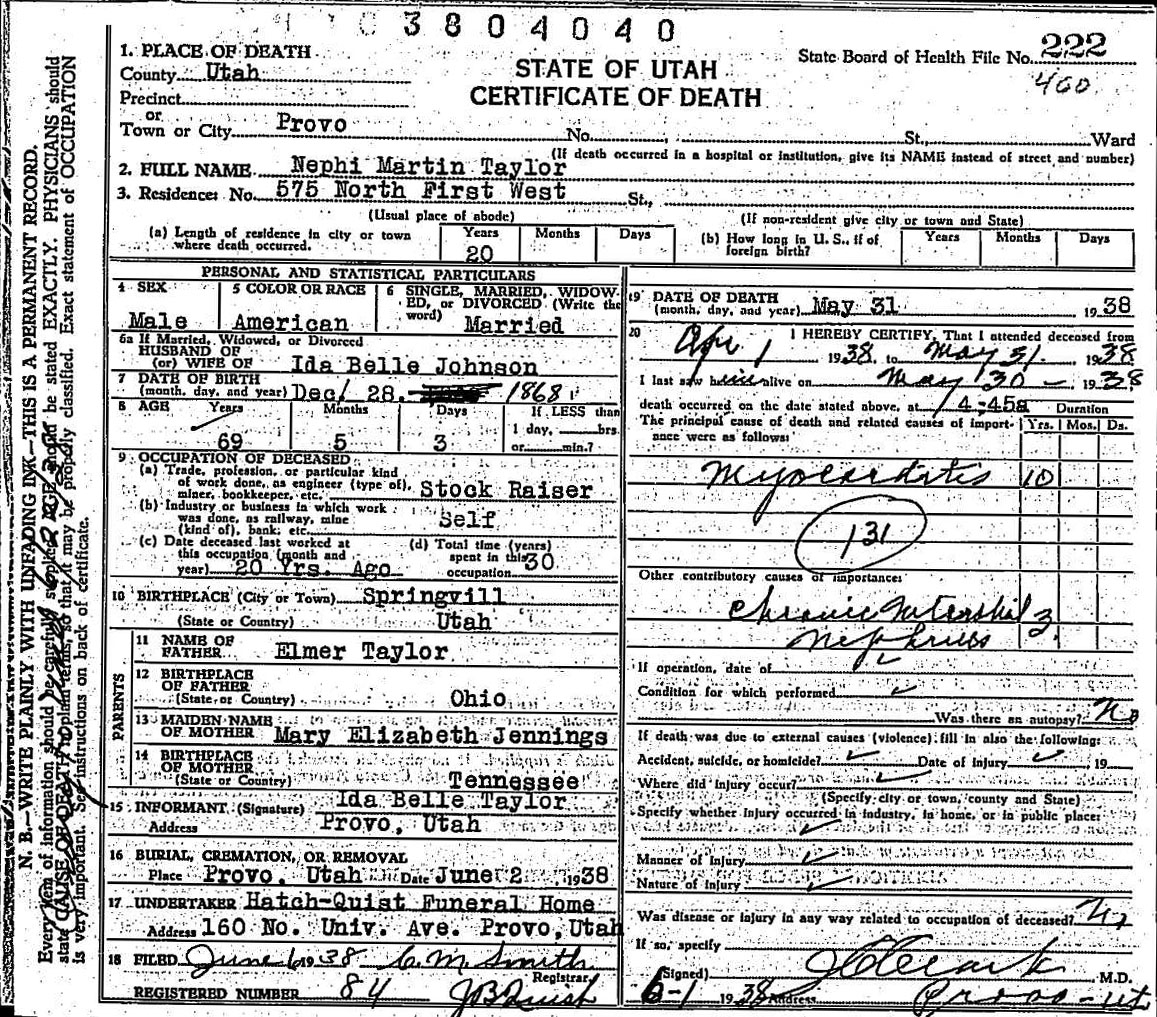 3804040
1. PLACE OF DEATH
County Utah
STATE OF UTAH
CERTIFICATE OF DEATH
State Board of Health File No. 222
460
Precinct
or
Town or City Provo No. St., Ward
(If death occurred in a hospital or institution, give its NAME instead of street and number)
2. FULL NAME Nephi Martin Taylor
3. Residence: No. 575 North First West St.,
(Usual place of abode) (If non-resident give city or town and State)
(a) Length of residence in city or town where death occurred. Years 20 Months Days
(b) How long in U. S., if of foreign birth? Years Months Days
PERSONAL AND STATISTICAL PARTICULARS
4 SEX Male
5 COLOR OR RACE American
6 SINGLE, MARRIED, WIDOWED, or DIVORCED (Write the word) Married
6a If Married, Widowed, or Divorced
HUSBAND OF
(or) WIFE OF Ida Belle Johnson
7 DATE OF BIRTH
(month, day, and year) Dec. 28. 1868
8 AGE Years 69 Months 5 Days 3
If LESS than
1 day, hrs
or min.?
9 OCCUPATION OF DECEASED
(a) Trade, profession, or particular kind
of work done, as engineer (type of),
miner, bookkeeper, etc. Stock Raiser
(b) Industry or business in which work
was done, as railway, mine
(kind of), bank, etc. Self
(c) Date deceased last worked at
this occupation (month and
year) 20 Yrs. Ago
(d) Total time (years)
spent in this
occupation 30
10 BIRTHPLACE (City or Town) Springvill
(State or Country) Utah
PARENTS
11 NAME OF
FATHER Elmer Taylor
12 BIRTHPLACE
OF FATHER
(State or Country) Ohio
13 MAIDEN NAME
OF MOTHER Mary Elizabeth Jennings
14 BIRTHPLACE
OF MOTHER
(State or Country) Tennessee
15 INFORMANT (Signature) Ida Belle Taylor
Address Provo, Utah
16 BURIAL, CREMATION, OR REMOVAL
Place Provo, Utah Date June 2 1938
17 UNDERTAKER Hatch-Quist Funeral Home
Address 160 No. Univ. Ave. Provo, Utah
18 FILED June 6 1938 C. M. Smith
Registrar
REGISTERED NUMBER 84 J B Quist
19 DATE OF DEATH
(month, day, and year) May 31 1938
20 I HEREBY CERTIFY, That I attended deceased from
Apr 1 1938 to May 31. 1938
I last saw him alive on May 30 - 1938
death occurred on the date stated above, at 4:45a
Duration
The principal cause of death and related causes of importance were as follows:
Yrs. Mos. Ds.
Myocarditis 10
131
Other contributory causes of importance:
Chronic Interstitial 3
Nephritis
If operation, date of
Condition for which performed
Was there an autopsy? No
If death was due to external causes (violence) fill in also the following:
Accident, suicide, or homicide? Date of injury 19
Where did injury occur?
(Specify city or town, county and State)
Specify whether injury occurred in industry, in home, or in public place:
Manner of Injury
Nature of Injury
Was disease or injury in any way related to occupation of deceased? No
If so, specify
(Signed) M.D.
6-1 1938 Address Provo - Ut
N. B.—WRITE PLAINLY WITH UNFADING INK—THIS IS A PERMANENT RECORD.
Every item of information should be carefully supplied. AGE should be stated EXACTLY. PHYSICIANS should
state CAUSE OF DEATH in plain terms, so that it may be properly classified. Exact statement of OCCUPATION
is very important. See instructions on back of certificate.